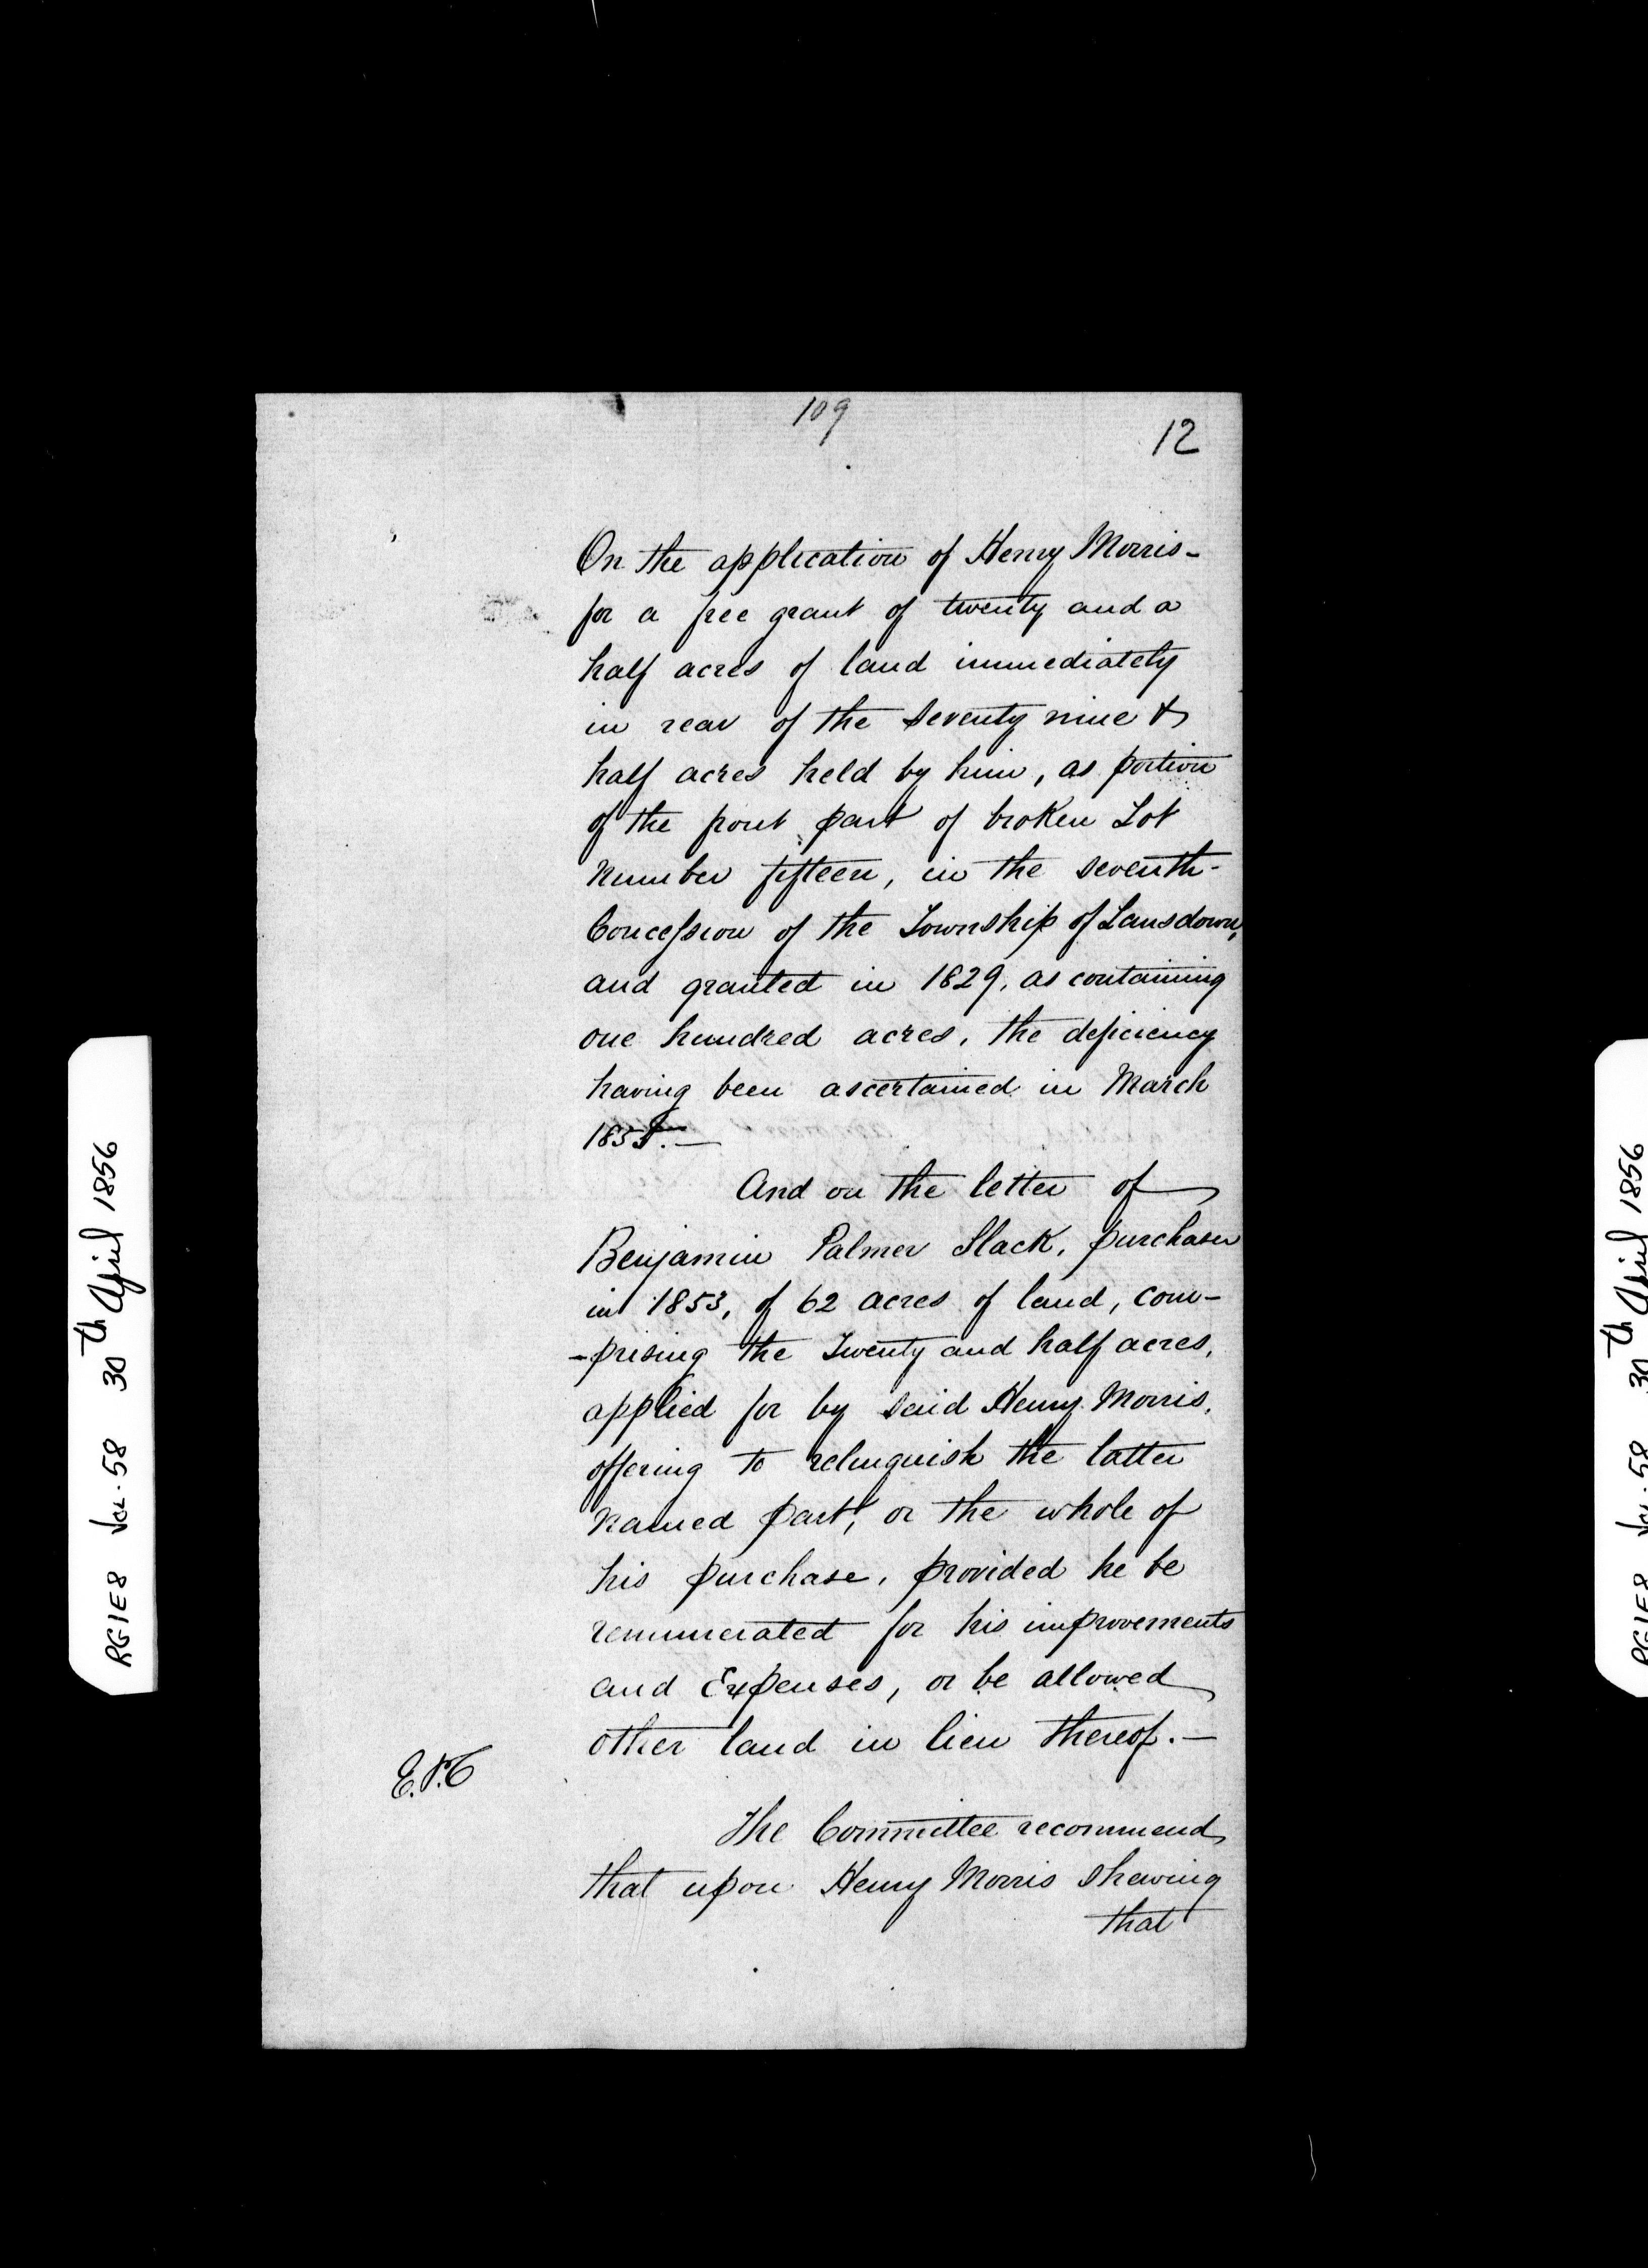 109
12
On the application of Henry Morris -
for a free grant of twenty and a
half acres of land immediately
in rear of the seventy nine &
half acres held by him, as portion
of the front part of broken Lot
Number fifteen, in the seventh -
Concession of the Township of Lansdown,
and granted in 1829, as containing
one hundred acres, the deficiency
having been ascertained in March
1855. —
And on the letter of
Benjamin Palmer Slack, purchaser
in 1853, of 62 acres of land, com-
-prising the Twenty and half acres,
applied for by said Henry Morris,
offering to relinquish the latter
named part, or the whole of
his purchase, provided he be
remunerated for his improvements
and Expenses, or be allowed
other land in lieu thereof. —
E.P.T
The Committee recommend
that upon Henry Morris shewing
that
RG1E8 Vol. 58 30th April 1856
RG1E8 Vol. 58 30th April 1856